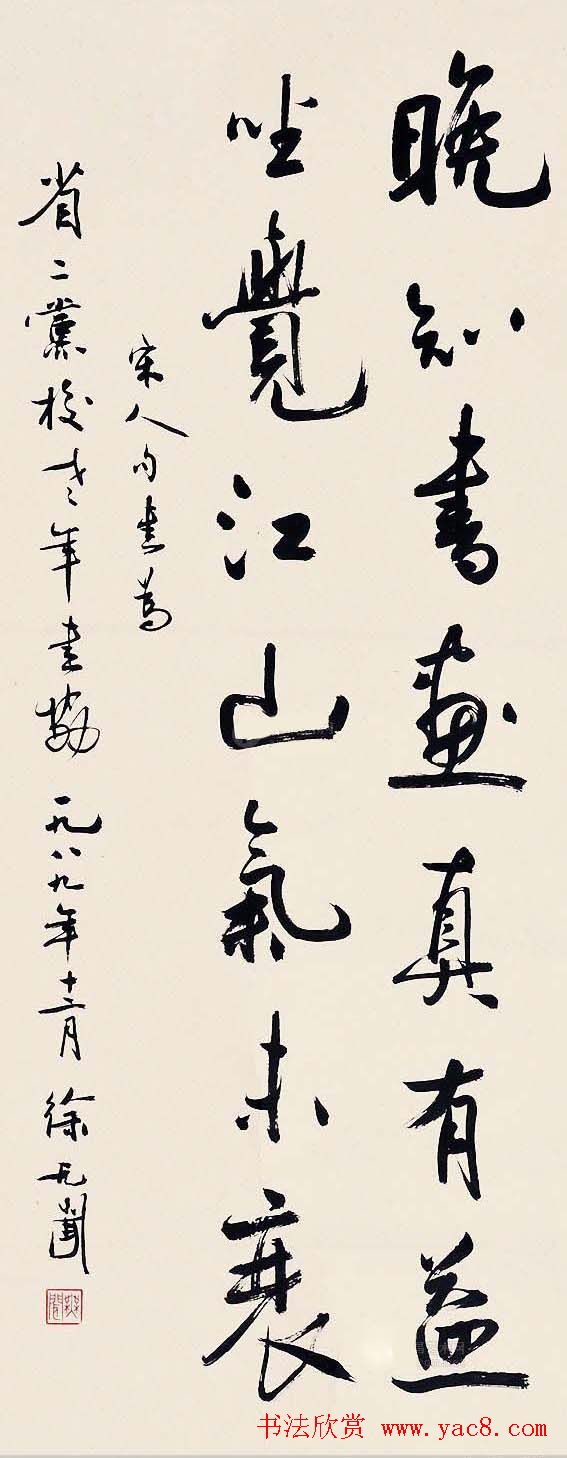 晚知書畫真有益
坐覺江山氣未衰
宋人句書為
省二黨校老年書協 一九八九年十二月 徐无聞
书法欣赏 www.yac8.com